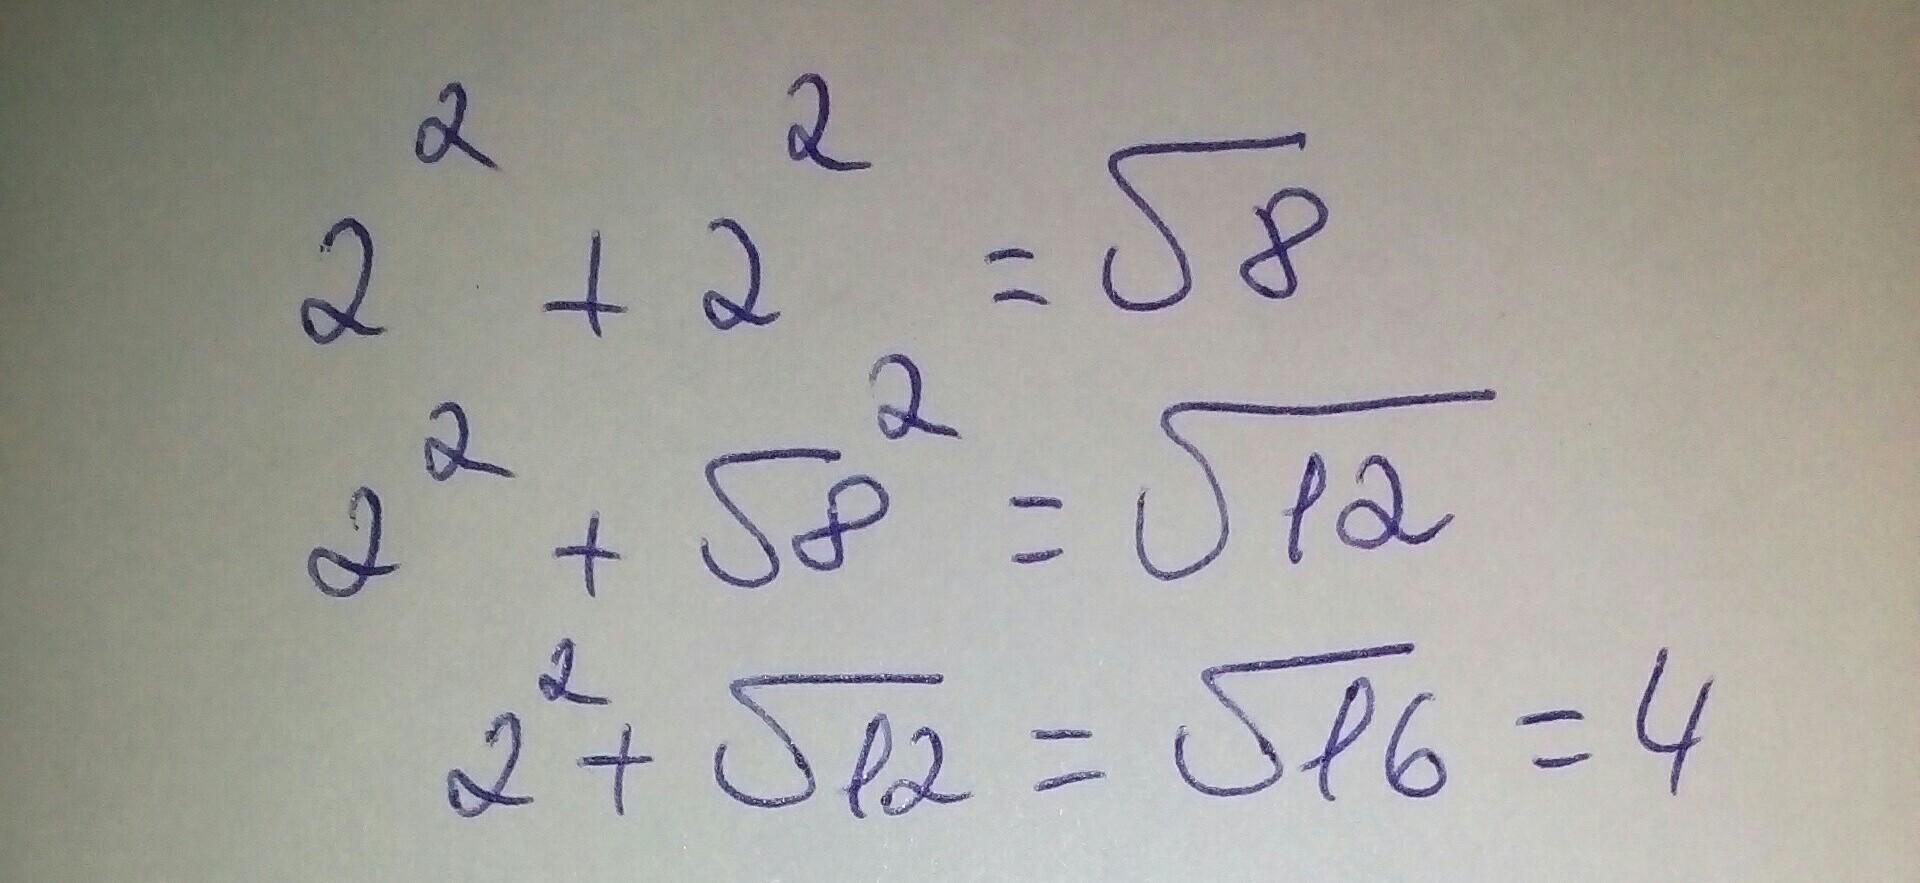 2² + 2² = √8
2² + √8² = √12
2² + √12 = √16 = 4